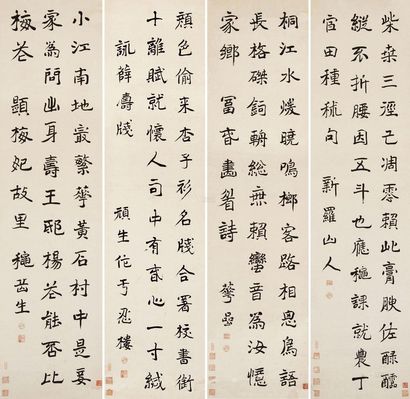 柴桑三逕已凋零賴此膏腴佐醁醽
縱不折腰因五斗也應穐課就農丁
官田種秫句 新羅山人
桐江水煖曉鳴榔客路相思鳥語
長格磔鉤輈總無賴蠻音為汝憶
家鄉 冨春畫眉詩 華嵒
顔色偷來杏子衫名牋合署校書銜
十離賦就懷人句中有春心一寸緘
詠薛濤牋 頑生作于忍樓
小江南地最繁華黃石村中是妾
家為問出身壽王邸楊花能否比
梅花 題梅妃故里 穐岳生